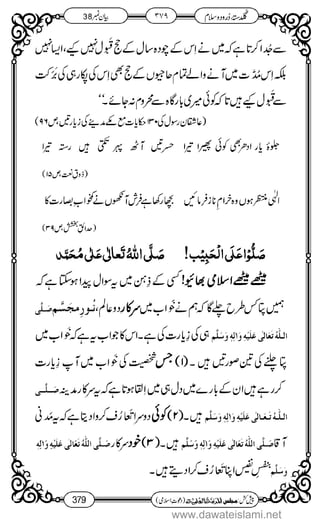 گلدستۂ دُرود و سلام ۳۷۹ بیان نمبر 38
سے جُدا کرتا ہے کہ میں نے اس کے چودہ سال کے حج قبول نہیں کیے، ایسا نہیں
بلکہ اِس مُدَّت میں آنے والے تمام حاجیوں کے حج بھی اس کی پکار ہی کی بَرَکت
سے قبول کیے ہیں تاکہ کوئی میری بارگاہ سے محروم نہ جائے۔‘‘
(عاشقانِ رسول کی ۱۳۰ حکایات مع مکے مدینے کی زیارتیں، ص۹۶)
جلوۂ یار اِدھر بھی کوئی پھیرا تیرا حسرتیں آٹھ پہر تکتی ہیں رستہ تیرا
(ذوقِ نعت، ص۱۵)
الٰہی منتظر ہوں وہ خرامِ ناز فرمائیں بچھا رکھا ہے فرش آنکھوں نے کمخوابِ بصارت کا
(حدائقِ بخشش، ص۳۹)
صَلُّوْا عَلَی الْحَبِیْب! صَلَّی اللّٰہُ تَعَالٰی عَلٰی مُحَمَّد
میٹھے میٹھے اسلامی بھائیو! کسی کے ذہن میں یہ سوال پیدا ہوسکتا ہے کہ
ہمیں کس طرح پتا چلے گا کہ ہم نے خواب میں سرکارِ دو عالم، نورِ مجسَّم صَلَّی
اللّٰہُ تَعَالٰی عَلَیْہِ وَاٰلِہٖ وَسَلَّم ہی کی زیارت کی ہے۔ اس کا جواب یہ ہے کہ خواب میں
پتا چلنے کی تین صورتیں ہیں ۔ (۱) جس شخصیت کی خواب میں آپ زیارت
کررہے ہیں ان کے بارے میں دل ہی میں اِلقا ہوتا ہے کہ یہ سرکارِ مدینہ صَلَّی
اللّٰہُ تَعَالٰی عَلَیْہِ وَاٰلِہٖ وَسَلَّم ہیں۔ (۲) کوئی دوسرا تَعَارُف کروا دیتا ہے کہ یہ مَدَنی
آقا صَلَّی اللّٰہُ تَعَالٰی عَلَیْہِ وَاٰلِہٖ وَسَلَّم ہیں۔ (۳) خود سرکار صَلَّی اللّٰہُ تَعَالٰی عَلَیْہِ وَاٰلِہٖ
وَسَلَّم بنفسِ نفیس اپنا تَعَارُف کرا دیتے ہیں۔
379 پیش کش: مجلس المدینۃ العلمیۃ (دعوتِ اسلامی)
www.dawateislami.net